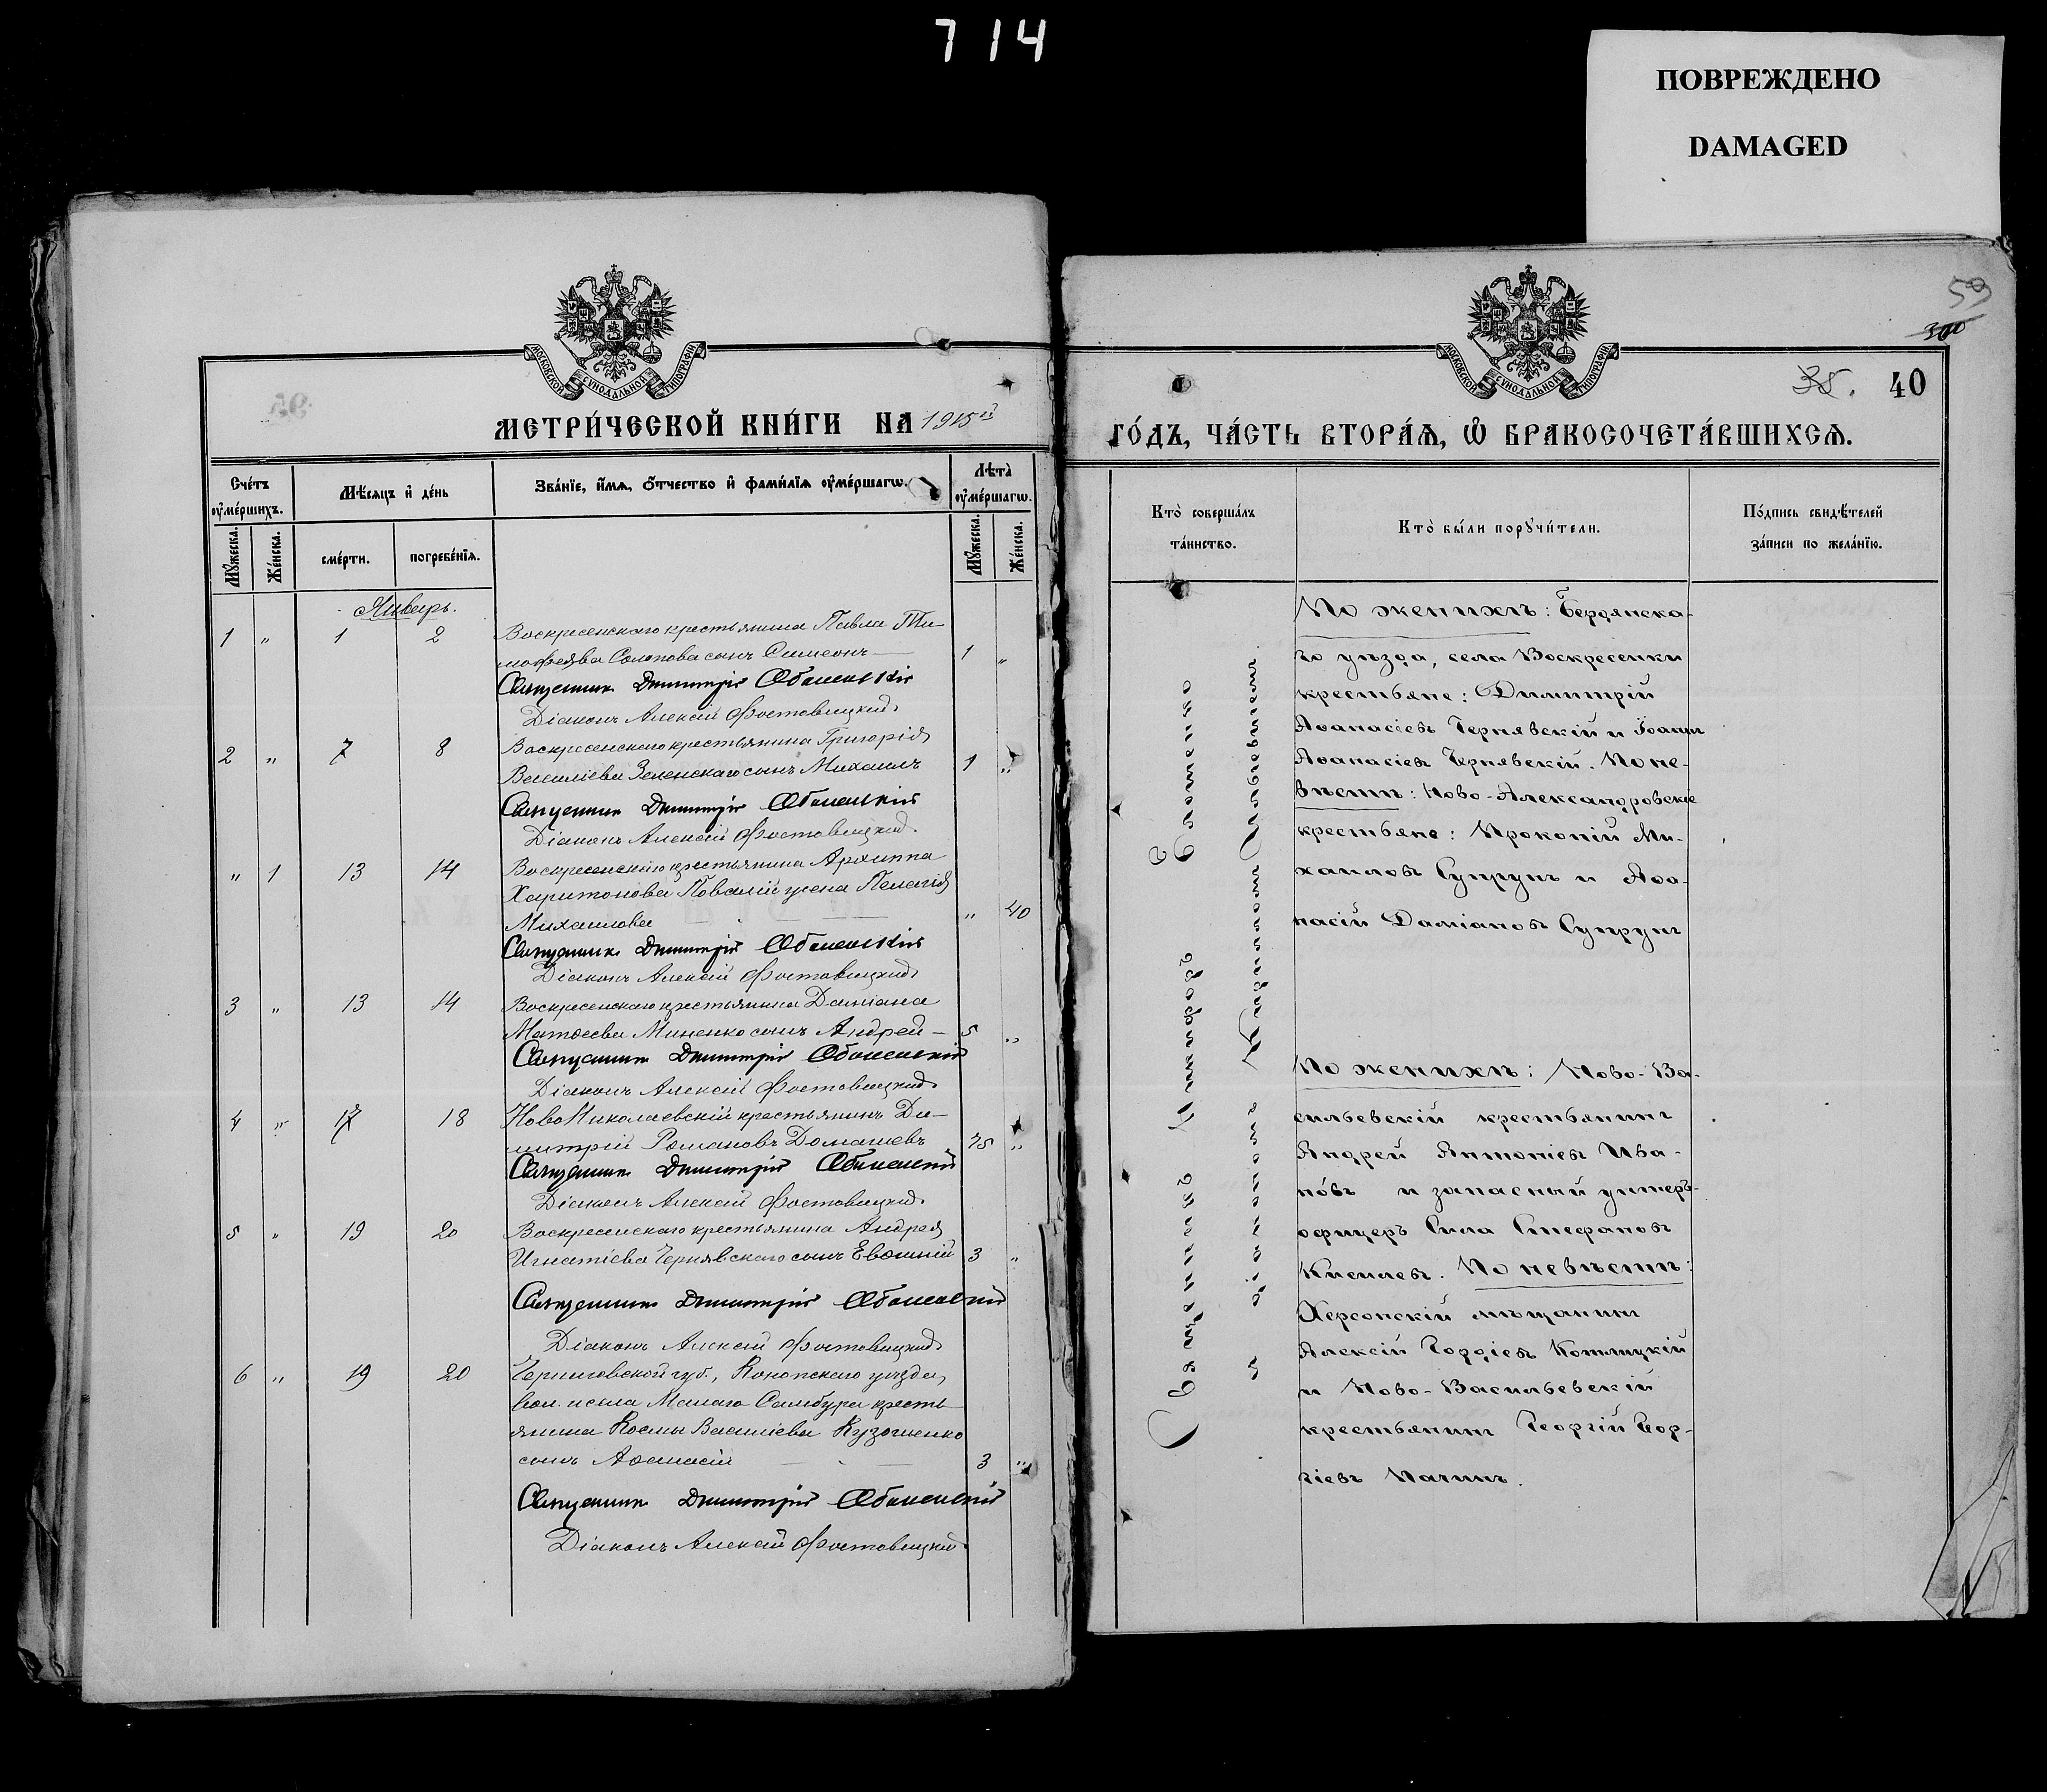 714
ПОВРЕЖДЕНО
DAMAGED
МОСКОВСКОЙ СѴНОДАЛЬНОЙ ТИПОГРАФІИ
МЕТРИ́ЧЕСКОЙ КНИ́ГИ НА 1915й
Сче́тъ оу҆ме́ршихъ.
Мѣ́сяцъ и҆ де́нь
Зва́нїе, и҆́мѧ, ѻ҆́тчество и҆ фами́лїѧ оу҆ме́ршагѡ.
Лѣта̀ оу҆ме́ршагѡ.
Мꙋ́жеска.
Же́нска.
сме́рти.
погребе́нїѧ.
Мꙋ́жеска.
Же́нска.
Январь.
1 " 1 2 Воскресенскаго крестьянина Павла Ти-
мофеева Солопова сынъ Симеонъ — 1 "
Священникъ Димитрій Оболенскій
Діаконъ Алексій Фостовицкій
2 " 7 8 Воскресенскаго крестьянина Григорія
Василіева Зеленскаго сынъ Михаилъ 1 "
Священникъ Димитрій Оболенскій
Діаконъ Алексій Фостовицкій
" 1 13 14 Воскресенскаго крестьянина Архиппа
Харитонова Повалій жена Пелагія
Михаилова — " 40
Священникъ Димитрій Оболенскій
Діаконъ Алексій Фостовицкій
3 " 13 14 Воскресенскаго крестьянина Даміана
Матѳеева Миненко сынъ Андрей — 5 "
Священникъ Димитрій Оболенскій
Діаконъ Алексій Фостовицкій
4 " 17 18 Ново Николаевскій крестьянинъ Ди-
митрій Романовъ Домашевъ 75 "
Священникъ Димитрій Оболенскій
Діаконъ Алексій Фостовицкій
5 " 19 20 Воскресенскаго крестьянина Андрея
Игнатіева Чернявскаго сынъ Евѳимій 3 "
Священникъ Димитрій Оболенскій
Діаконъ Алексій Фостовицкій
6 " 19 20 Черниговской губ., Конопскаго уѣзда,
вол. и села Малаго Самбура кресть-
янина Космы Василіева Кузоченко
сынъ Аѳанасій — 3 "
Священникъ Димитрій Оболенскій
Діаконъ Алексій Фостовицкій
МОСКОВСКОЙ СѴНОДАЛЬНОЙ ТИПОГРАФІИ
59
300
38. 40
ГО́ДЪ, ЧА́СТЬ ВТОРА́Ѧ, Ѽ БРАКОСОЧЕТА́ВШИХСѦ.
Кто̀ соверша́лъ
та́инство.
Кто̀ бы́ли порꙋчи́тели.
По́дпись свидѣ́телей
за́писи по жела́нїю.
Священникъ Никифоръ
и діаконъ
По женихѣ: Бердянска-
го уѣзда, села Воскресенки
крестьяне: Димитрій
Аѳанасіевъ Чернявскій и Іоаннъ
Аѳанасіевъ Чернявскій. По не-
вѣстѣ: Ново-Александровскіе
крестьяне: Прокопій Ми-
хаиловъ Супрунъ и Аѳа-
насій Даміановъ Супрунъ
По женихѣ: Ново-Ва-
сильевскій крестьянинъ
Андрей Антоніевъ Ива-
новъ и запасный унтеръ-
офицеръ Сила Стефановъ
Киселевъ. По невѣстѣ:
Херсонскій мѣщанинъ
Алексій Гордіевъ Котлицкій
и Ново-Васильевскій
крестьянинъ Георгій Геор-
гіевъ Пачинъ.